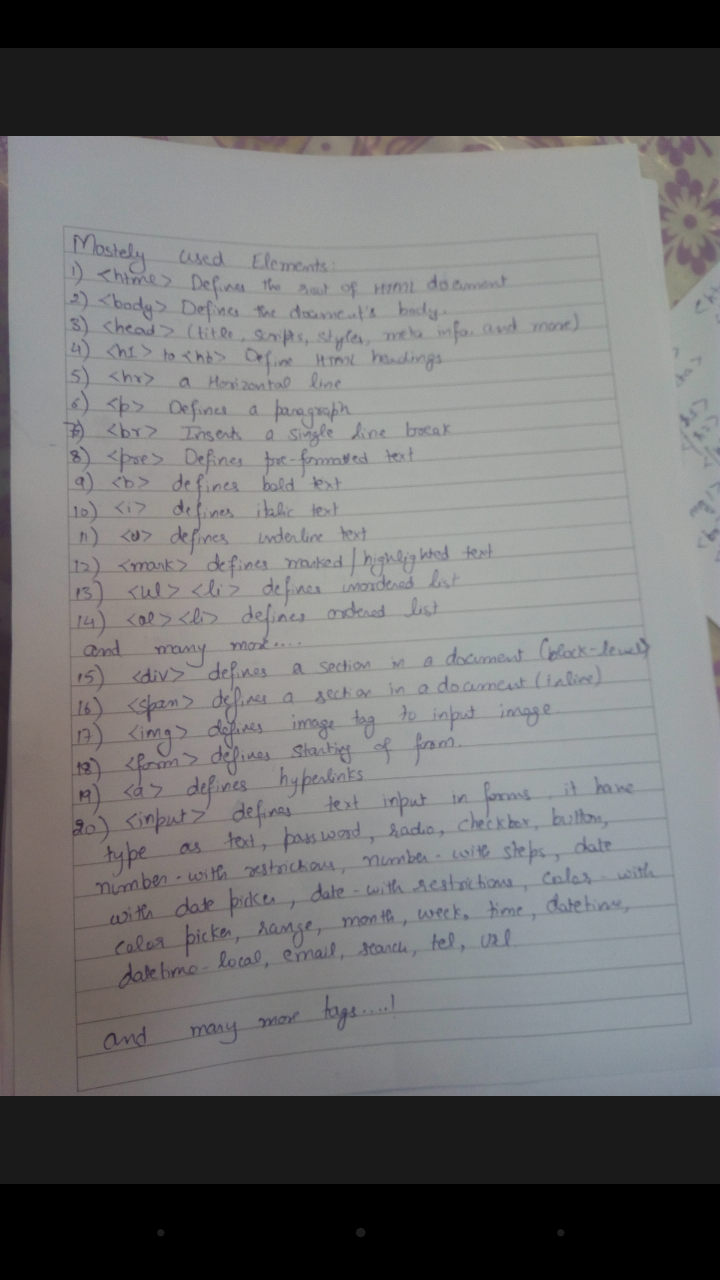 Mostely used Elements:
1) <html> Defines the root of HTML document
2) <body> Defines the document's body.
3) <head> (title, scripts, styles, meta info. and more)
4) <h1> to <h6> Define HTML headings
5) <hr> a Horizontal line
6) <p> Defines a paragraph
7) <br> Inserts a single line break
8) <pre> Defines pre-formatted text
9) <b> defines bold text
10) <i> defines italic text
11) <u> defines underline text
12) <mark> defines marked/highlighted text
13) <ul> <li> defines unordered list
14) <ol> <li> defines ordered list
and many more....
15) <div> defines a section in a document (block-level)
16) <span> defines a section in a document (inline)
17) <img> defines image tag to input image
18) <form> defines starting of form.
19) <a> defines hyperlinks
20) <input> defines text input in forms. it have
type as text, password, radio, checkbox, button,
number-with restrictions, number-with steps, date
with date picker, date-with restrictions, color-with
color picker, range, month, week, time, datetime,
datetime-local, email, search, tel, url
and many more tags....!